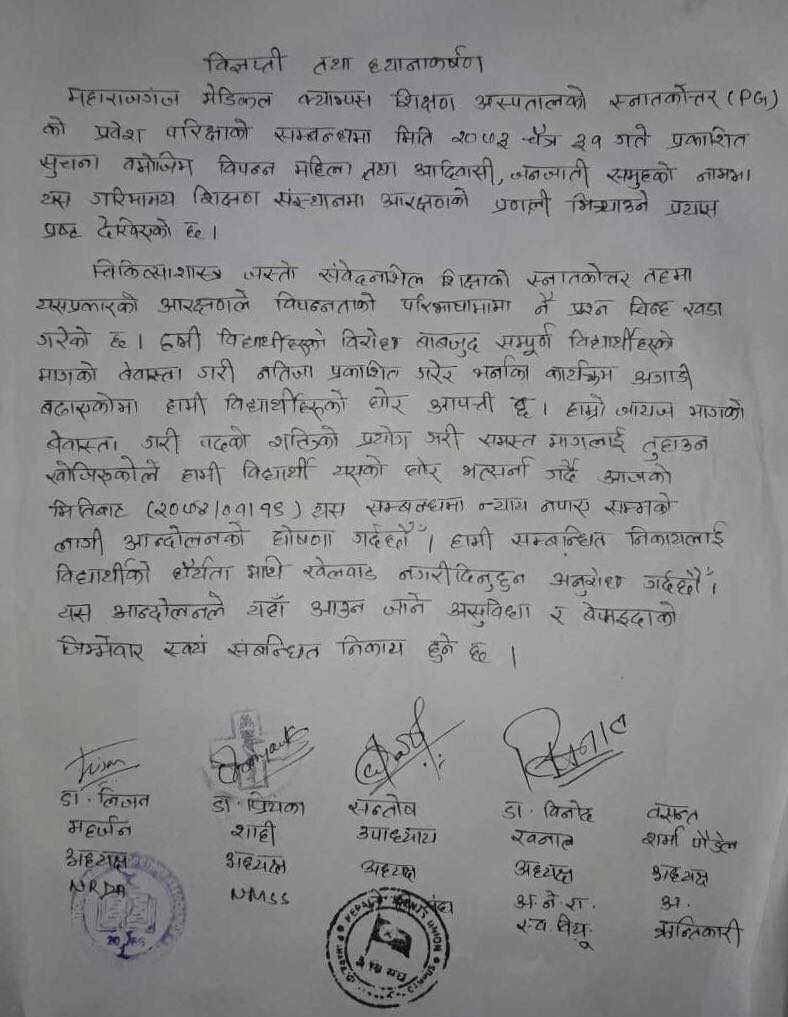 विज्ञप्ती तथा ध्यानाकर्षण
महाराजगंज मेडिकल क्याम्पस शिक्षण अस्पतालको स्नातकोत्तर (PG)
को प्रवेश परिक्षाको सम्बन्धमा मिति २०७३ चैत्र ३१ गते प्रकाशित
सुचना बमोजिम विपन्न महिला तथा आदिवासी, जनजाती समुहको नाममा
यस गरिमामय शिक्षण संस्थानमा आरक्षणको प्रणाली भित्र्याउने प्रयास
प्रष्ट देखिएको छ ।
चिकित्साशास्त्र जस्तो संवेदनाशिल शिक्षाको स्नातकोत्तर तहमा
यसप्रकारको आरक्षणले विपन्नताको परिभाषामामा नै प्रश्न चिन्ह खडा
गरेको छ । हामी विद्यार्थीहरुको विरोध बाबजुद सम्पूर्ण विद्यार्थीहरुको
मागको बेवास्ता गरी नतिजा प्रकाशित गरेर भर्नाका कार्यक्रम अगाडी
बढाएकोमा हामी विद्यार्थीहरुको घोर आपत्ती छ । हाम्रो जायज मागको
बेवास्ता गरी पदको शक्तिको प्रयोग गरी समस्त मागलाई तुहाउन
खोजिएकोले हामी विद्यार्थी यसको घोर भत्सर्ना गर्दै आजको
मितिबाट (२०७४/०१/१९) यस सम्बन्धमा न्याय नपाए सम्मको
लागी आन्दोलनको घोषणा गर्दछौँ । हामी सम्बन्धित निकायलाई
विद्यार्थीको धैर्यता माथि खेलवाड नगरीदिनुहुन अनुरोध गर्दछौँ ।
यस आन्दोलनले यहाँ आउन जाने असुविधा र बेफाइदाको
जिम्मेवार स्वयं संबन्धित निकाय हुने छ ।
डा. लिजन डा. प्रियंका सन्तोष डा. विनोद वसन्त
महर्जन शाही उपाध्याय खनाल शर्मा पौडेल
अध्यक्ष अध्यक्ष अध्यक्ष अध्यक्ष अध्यक्ष
NRDA NMSS अ.ने.रा. अ.
स्व.वियू. क्रान्तिकारी